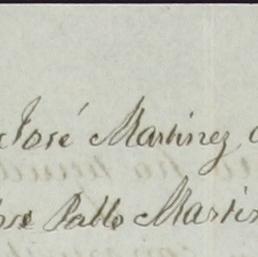 José Martinez
José Pablo Martin